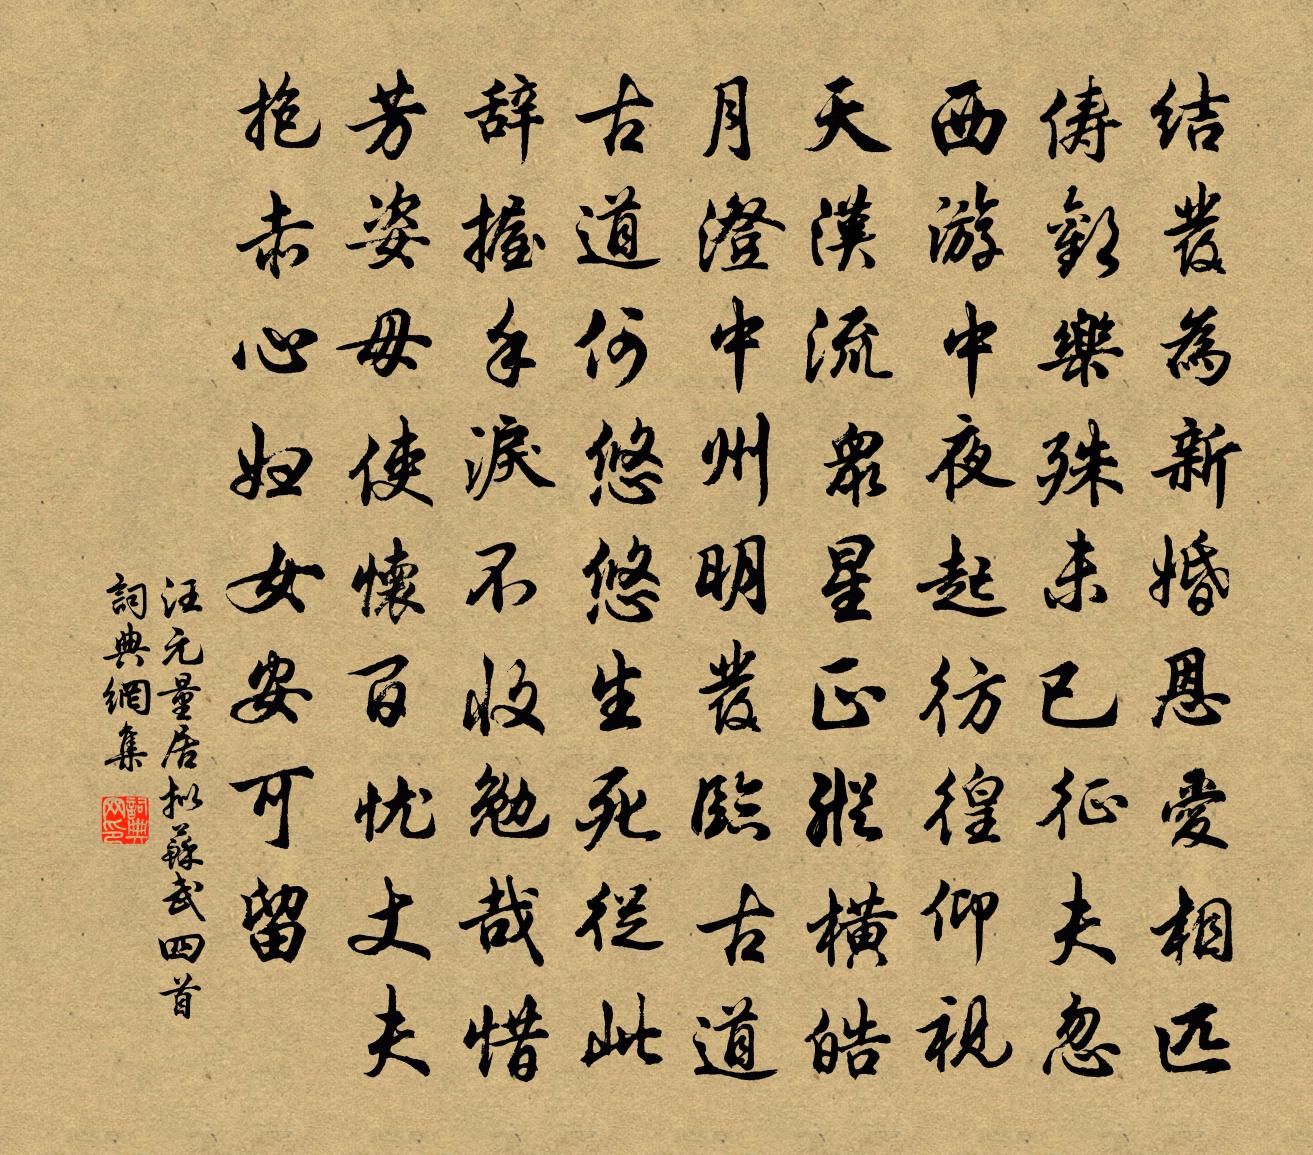 结發為新婚恩愛相匹
俦歡樂殊未已征夫忽
西游中夜起彷徨仰視
天漢流衆星正縱橫皓
月澄中州明發臨古道
古道何悠悠生死從此
辞握手淚不收勉哉惜
芳姿毋使懷百忧丈夫
抱赤心妇女安可留
汪元量居拟蘇武四首
詞典網集
詞典网印